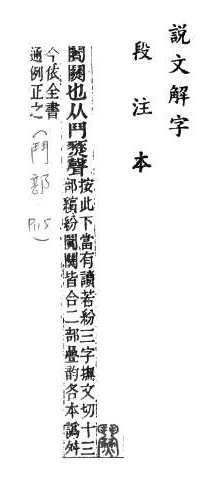 說文解字
段注本
也从鬥燹聲按此下當有讀若粉三字撫文切十三
部繽紛皆合二部疊韵各本譌舛
今依全書
通例正之
(鬥部 P115)